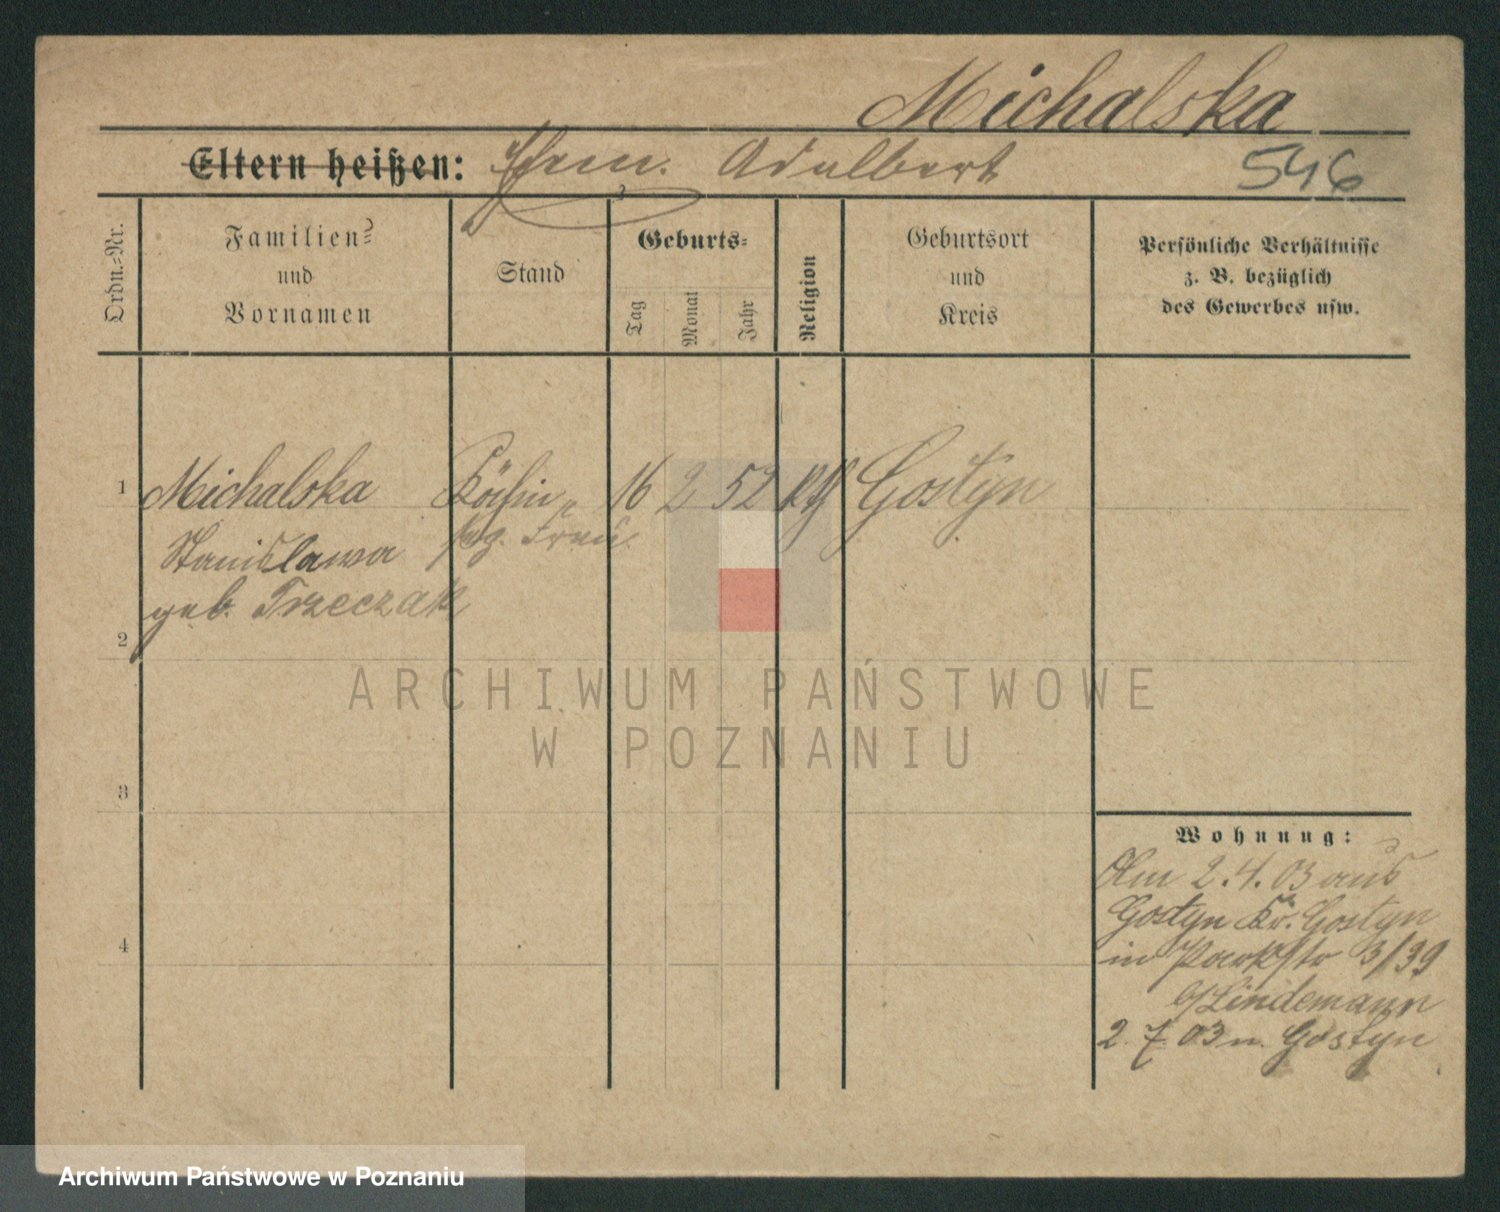 Michalska
Eltern heißen: Ehem. Adalbert 546
Ordn.-Nr.
Familien-
und
Vornamen
Stand
Geburts-
Tag
Monat
Jahr
Religion
Geburtsort
und
Kreis
Persönliche Verhältnisse
z. B. bezüglich
des Gewerbes usw.
1 Michalska Köchin 16 2 52 Gostyn
Stanislawa Frau
geb. Trzeczak
2
3
4
Wohnung:
2.4.03 aus
Gostyn Kr. Gostyn
in Parkstr 3/39
b/Lindemann
2.7.03 n. Gostyn
ARCHIWUM PAŃSTWOWE
W POZNANIU
Archiwum Państwowe w Poznaniu